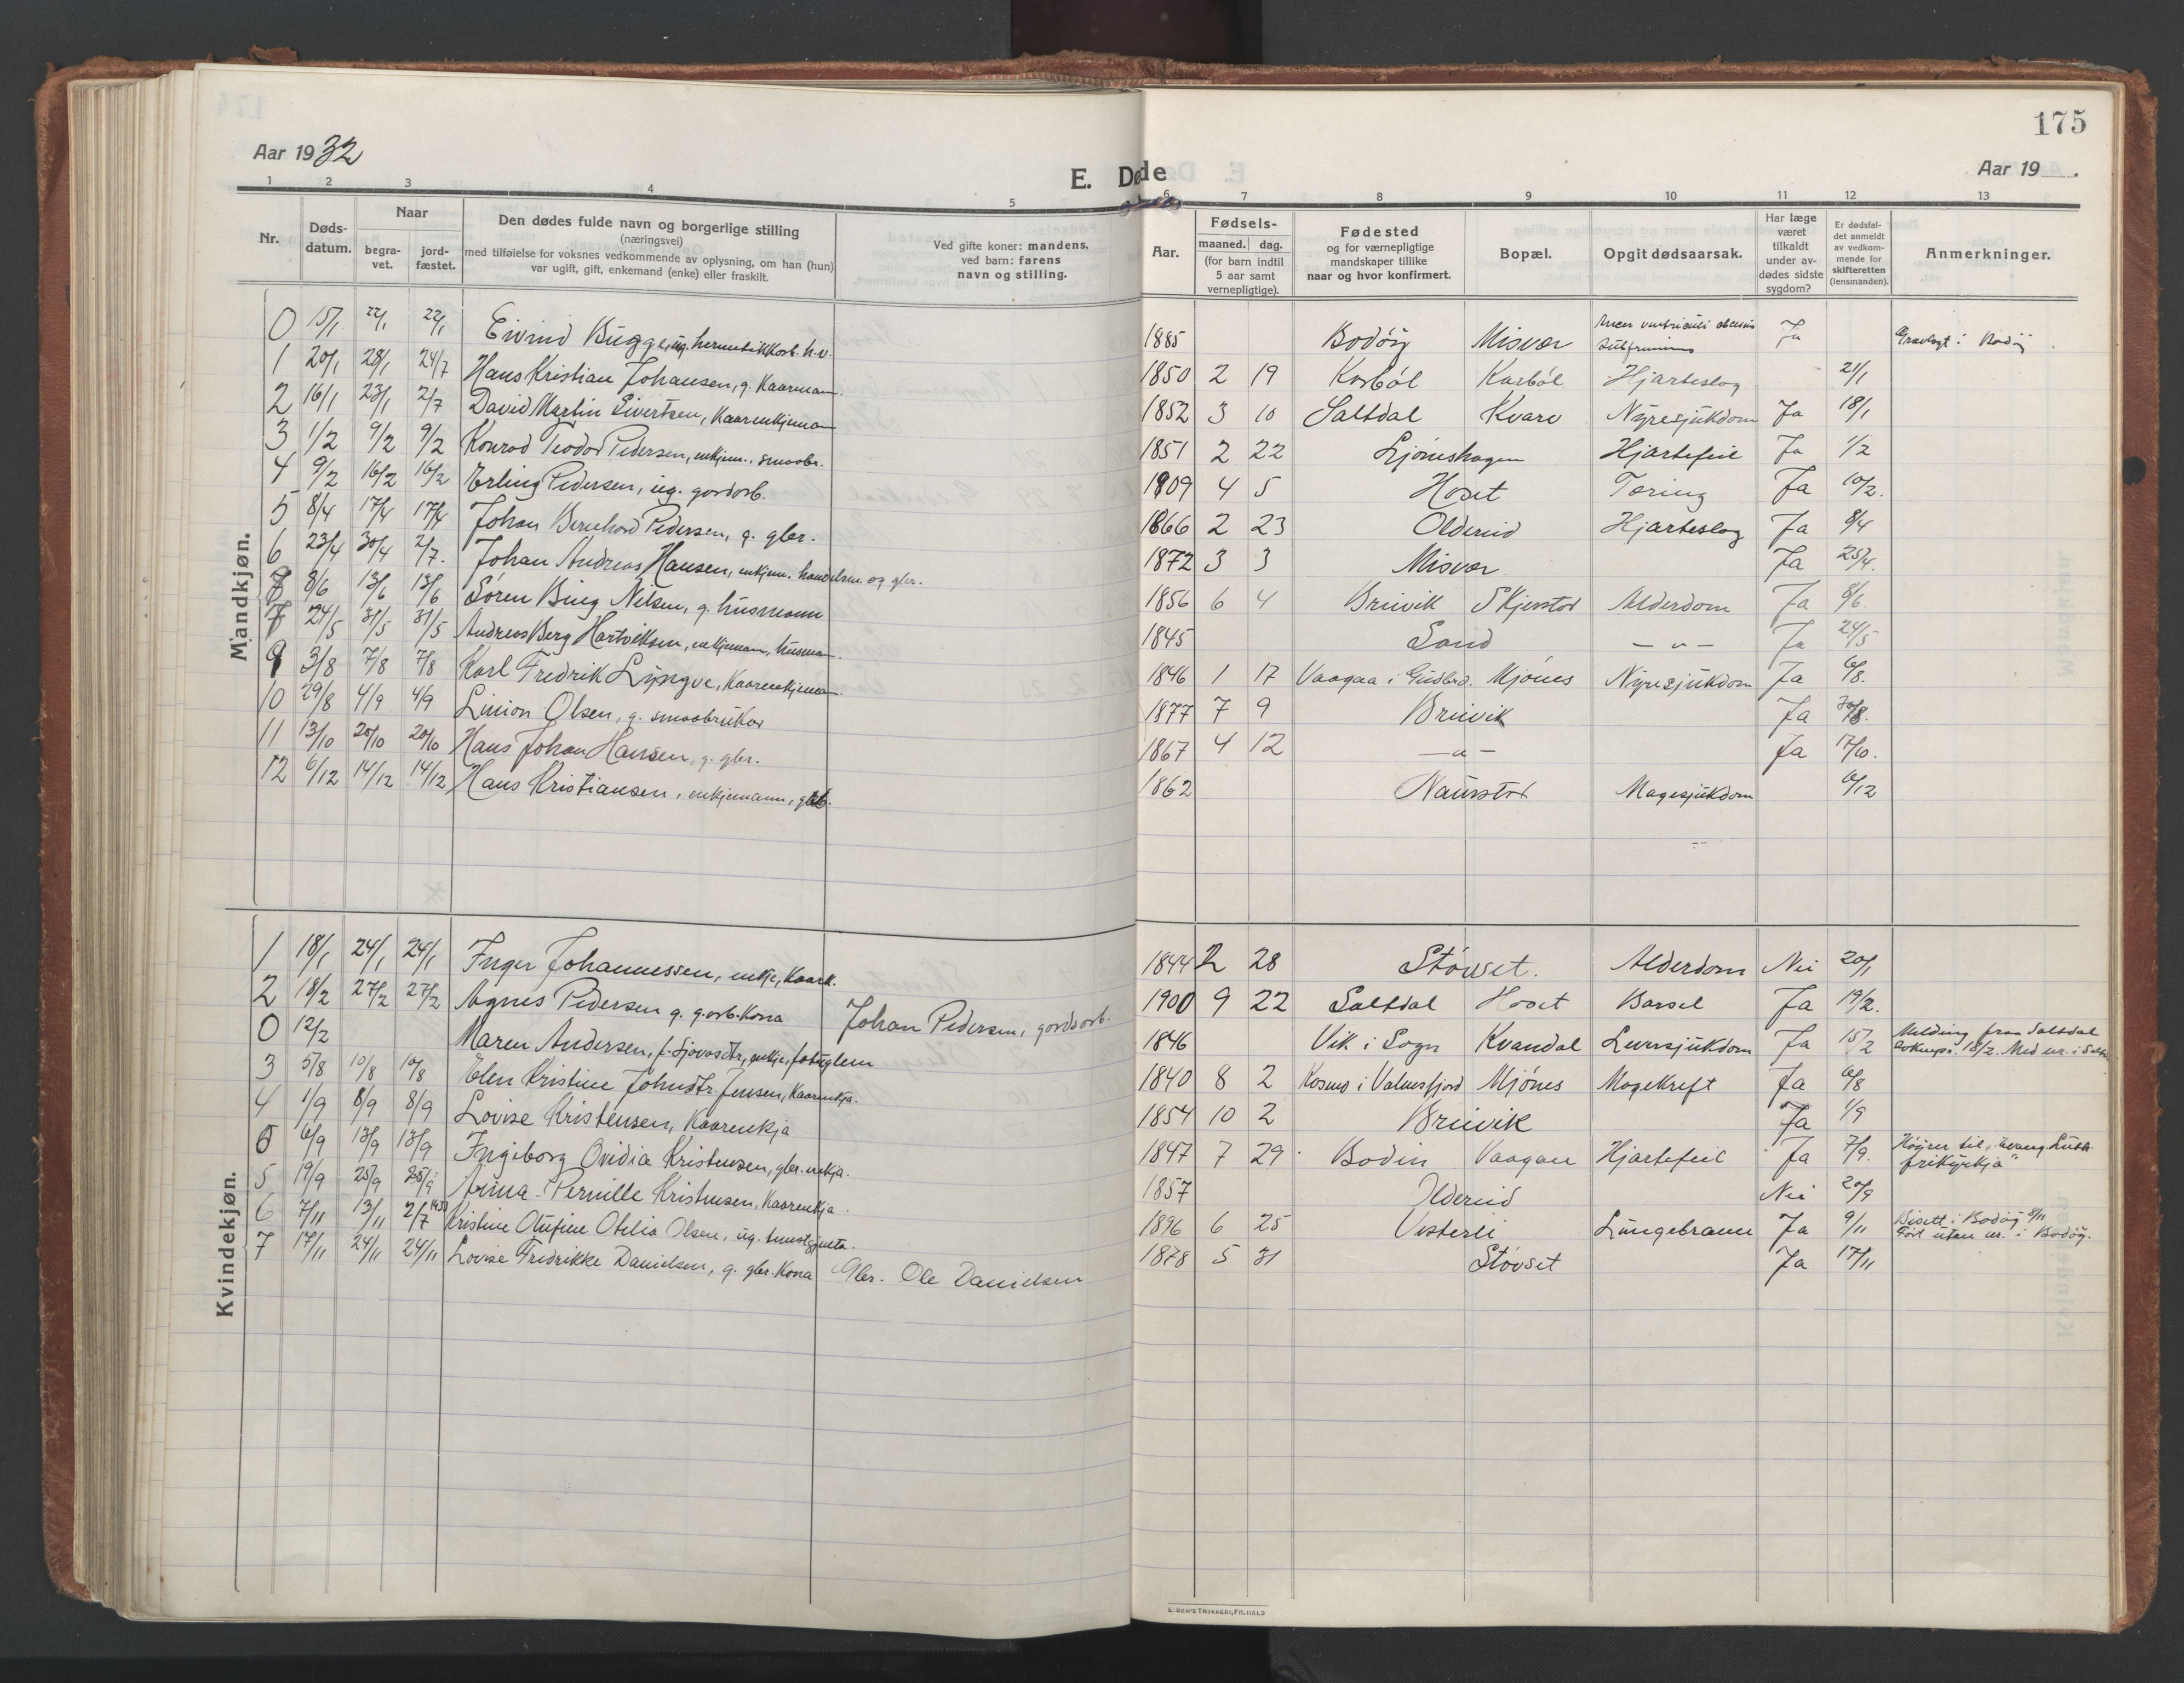 175
Aar 1932
E. Døde
Aar 19
1 2 3 4 5 6 7 8 9 10 11 12 13
Nr.
Døds-datum.
Naar
begra-vet.
jord-fæstet.
Den dødes fulde navn og borgerlige stilling
(næringsvei)
med tilføielse for voksnes vedkommende av oplysning, om han (hun)
var ugift, gift, enkemand (enke) eller fraskilt.
Ved gifte koner: mandens,
ved barn: farens
navn og stilling.
Aar.
Fødsels-
maaned. dag.
(for barn indtil
5 aar samt
vernepligtige).
Fødested
og for værnepligtige
mandskaper tillike
naar og hvor konfirmert.
Bopæl.
Opgit dødsaarsak.
Har læge
været
tilkaldt
under av-
dødes sidste
sygdom?
Er dødsfal-
det anmeldt
av vedkom-
mende for
skifteretten
(lensmanden).
Anmerkninger.
Mandkjøn.
0 15/1 22/1 22/1 Eivind Bugge, ug. 1885 Bodøy Misvær Ja Gravlagt i Bodøy
1 20/1 28/1 24/7 Hans Kristian Johansen, g. Kaarmann. 1850 2 19 Karbøl Karbøl Hjarteslag 21/1
2 16/1 23/1 2/7 David Martin Sivertsen, Kaarenkjemann 1852 3 10 Saltdal Kvarv Nyresjukdom Ja 18/1
3 1/2 9/2 9/2 Konrad Teodor Pedersen, enkjem., smaabr. 1851 2 22 Ljøneshagen Hjartefeil Ja 1/2
4 9/2 16/2 16/2 Erling Pedersen, ug. gardarb. 1909 4 5 Hoset Tæring Ja 10/2.
5 8/4 17/4 17/4 Johan Bernhard Pedersen, g. gbr. 1866 2 23 Oldereid Hjarteslag Ja 8/4
6 23/4 30/4 2/7. Johan Andreas Hansen, enkjem. handelsm. og gbr. 1872 3 3 Misvær Ja 25/4.
8 8/6 13/6 13/6 Søren Bing Nilsen, g. husmann 1856 6 4 Breivik Skjerstad Alderdom Ja 8/6.
7 24/5 31/5 31/5 Andreas Berg Hartviksen, enkjemann, husmann. 1845 Sand — " — Ja 24/5
9 3/8 7/8 7/8 Karl Fredrik Lyngve, Kaarenkjemann. 1846 1 17 Vaagaa i Gudbrd. Mjønes Nyresjukdom Ja 6/8.
10 29/8 4/9 4/9 Simon Olsen, g. smaabrukar 1877 7 9 Breivik Ja 30/8.
11 13/10 20/10 20/10 Hans Johan Hansen, g. gbr. 1867 4 12 — " — Ja 17/10.
12 6/12 14/12 14/12 Hans Kristiansen, enkjemann, gbr. 1862 Naurstad Magesjukdom 6/12
Kvindekjøn.
1 18/1 24/1 24/1 Inger Johannessen, enkje, Kaark. 1844 2 28 Støvset. Alderdom Nei 20/1
2 18/2 27/2 27/2 Agnes Pedersen g. g.arb. Kona Johan Pedersen, gardsarb. 1900 9 22 Saltdal Hoset Barsel Ja 19/2.
0 12/2 Maren Andersen, f. Sjovasdtr, enkje, fatiglem 1846 Vik i Sogn Kvandal Leversjukdom Ja 15/2 Melding fraa Saltdal soknepr. 18/2. Med nr. i Saltd.
3 5/8 10/8 10/8 Elen Kristine Johnsdtr. Jensen, Kaarenkja. 1840 8 2 Kosmo i Valnesfjord Mjønes Magekreft Ja 6/8
4 1/9 8/9 8/9 Lovise Kristensen, Kaarenkja 1854 10 2 Breivik Ja 1/9
0 6/9 13/9 13/9 Ingiborg Ovidia Kristensen, gbr. enkja. 1847 7 29 Bodin Vaagan Hjartefeil Ja 7/9. Høyrer til "evang. Luth. frikyrkja"
5 19/9 25/9 25/9 Anna Pernille Kristensen, Kaarenkja. 1857 Oldereid Nei 20/9
6 7/11 13/11 2/7 1933 Kristine Olufine Otelia Olsen, ug. tenestgjenta. 1896 6 25 Vesterli Lungebrann Ja 9/11 Bisett i Bodøy 8/11 Ført utan nr. i Bodøy.
7 17/11 24/11 24/11 Lovise Fredrikke Danielsen, g. gbr. Kona Gbr. Ole Danielsen 1878 5 31 Støvset Ja 17/11